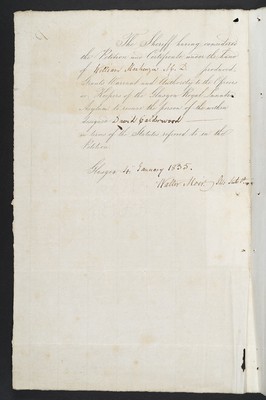 The Sheriff having considered
the Petition and Certificate under the hand
of William Mackenzie M.D. produced,
Grants Warrant and Authority to the
Keepers of the Glasgow Royal Lunatic
Asylum to receive the person of the within
designed David Calderwood
in terms of the Statutes referred to in the
Petition.
Glasgow 4 January 1835.
Walter Moir